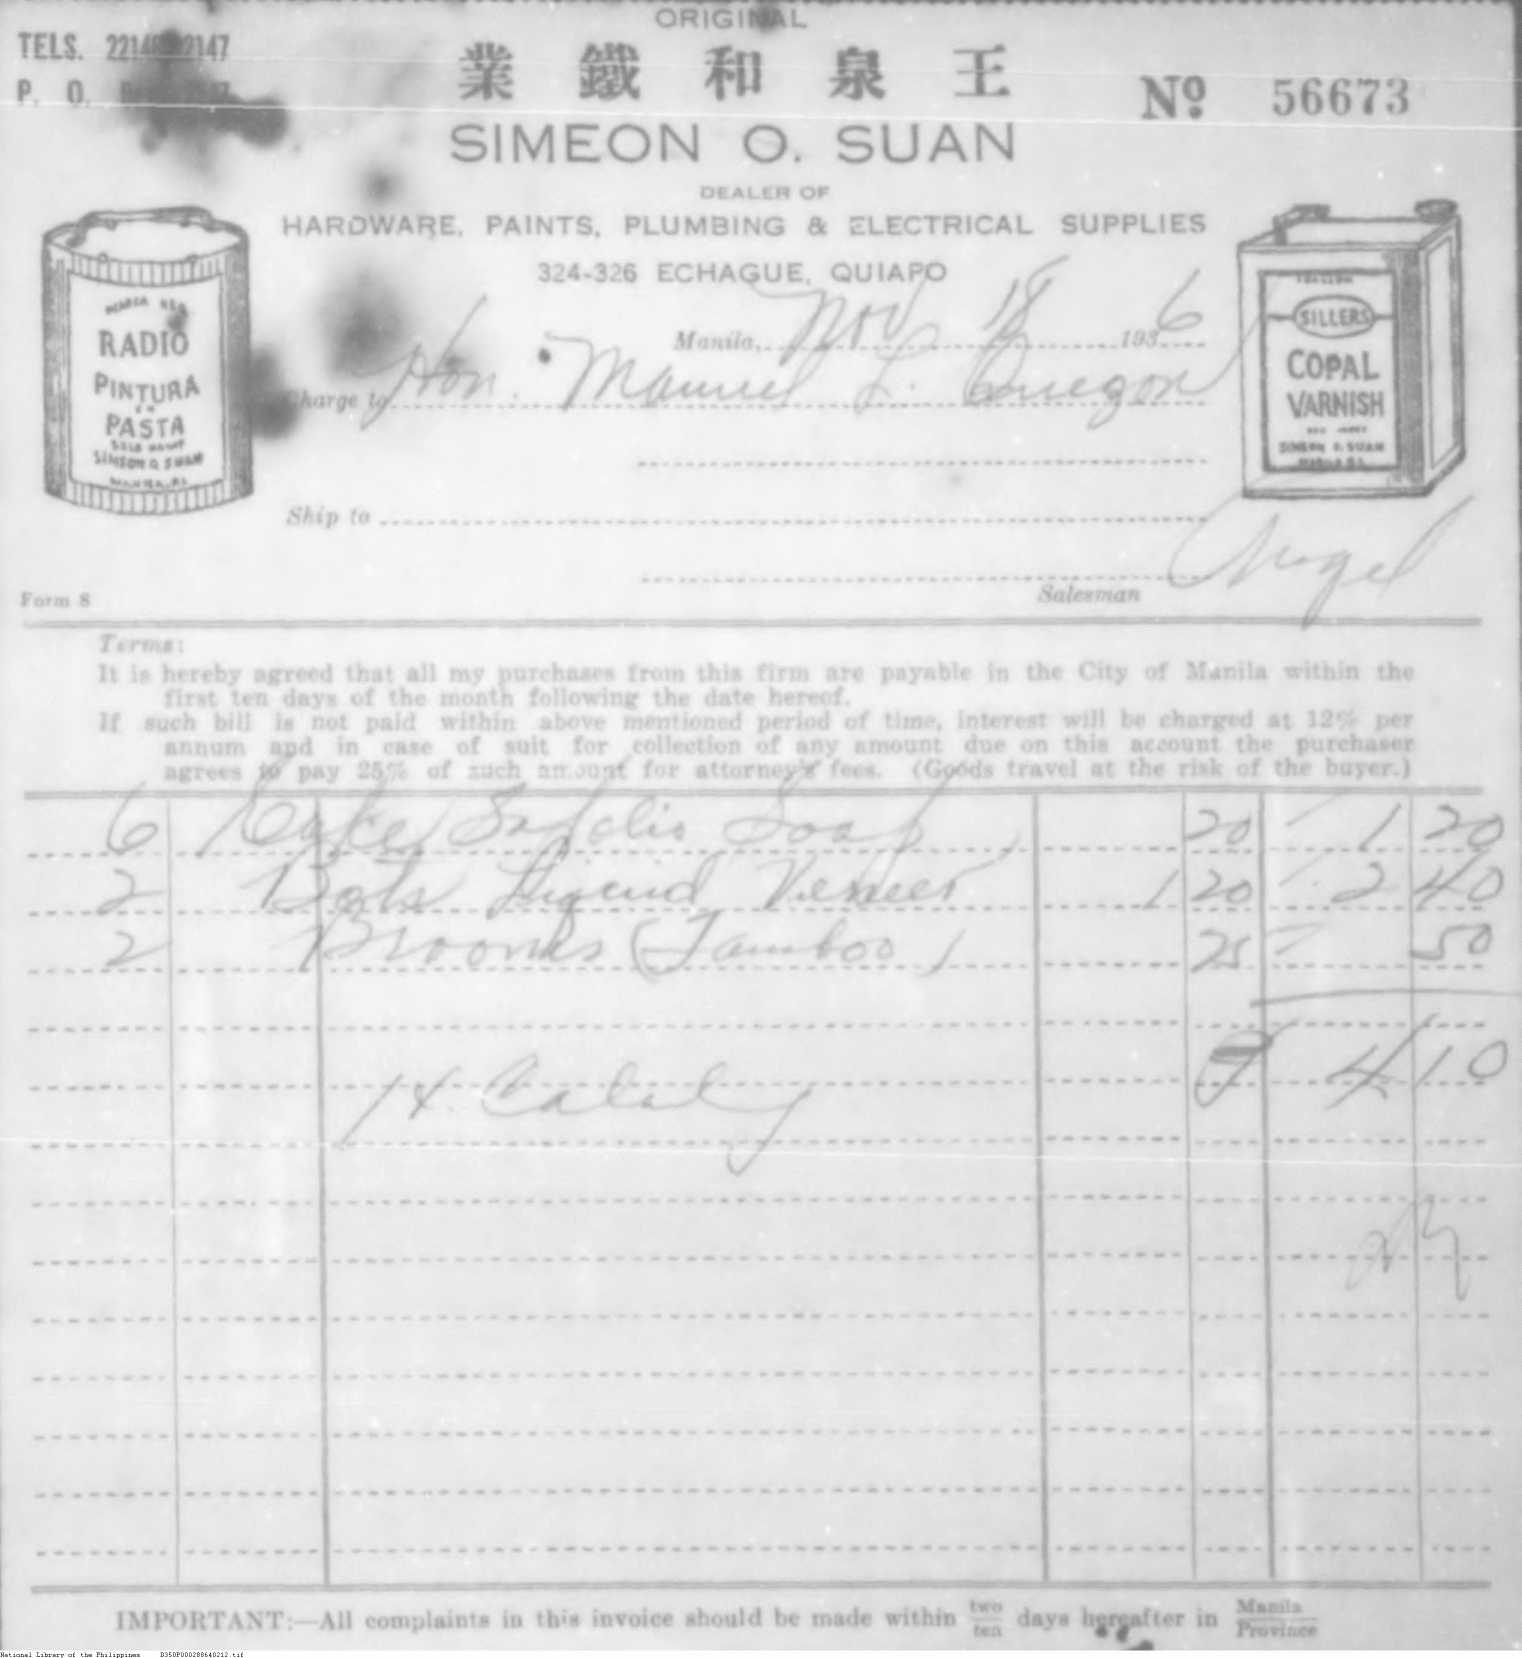 ORIGINAL
TELS. 22148 22147
P. O.
業 鐵 和 泉 王
No 56673
SIMEON O. SUAN
DEALER OF
HARDWARE, PAINTS, PLUMBING & ELECTRICAL SUPPLIES
324-326 ECHAGUE, QUIAPO
Manila, Nov 18 1936
Charge to Hon. Manuel L. Quezon
Ship to
Salesman Angel
RADIO
PINTURA
EN
PASTA
SIMEON O. SUAN
MANILA, P.I.
SILLERS
COPAL
VARNISH
SIMEON O. SUAN
MANILA P.I.
Form 8
Terms:
It is hereby agreed that all my purchases from this firm are payable in the City of Manila within the
first ten days of the month following the date hereof.
If such bill is not paid within above mentioned period of time, interest will be charged at 12% per
annum and in case of suit for collection of any amount due on this account the purchaser
agrees to pay 25% of such amount for attorney's fees. (Goods travel at the risk of the buyer.)
6 Cake Sapolio Soap 20 1 20
2 Bots Liquid Veneer 1 20 2 40
2 Brooms (Tamboo) 25 50
₱ 4 10
IMPORTANT:—All complaints in this invoice should be made within two/ten days hereafter in Manila/Province
National Library of the Philippines B350P000288640212.tif